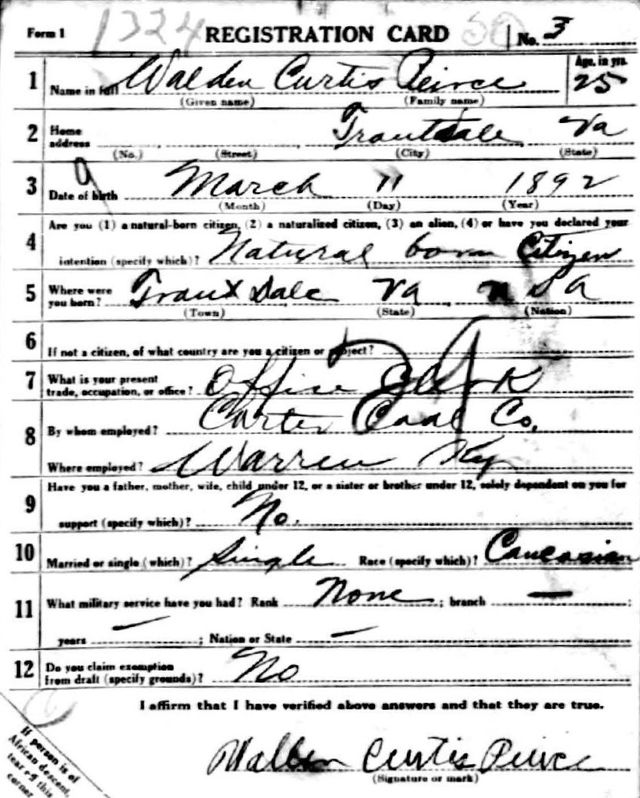 Form 1 1324 REGISTRATION CARD No. 3
1 Name in full Walden Curtis Peirce Age, in yrs. 25
(Given name) (Family name)
2 Home address Troutdale Va
(No.) (Street) (City) (State)
3 Date of birth March 11 1892
(Month) (Day) (Year)
4 Are you (1) a natural-born citizen, (2) a naturalized citizen, (3) an alien, (4) or have you declared your
intention (specify which)? Natural born Citizen
5 Where were you born? Trout Dale Va USA
(Town) (State) (Nation)
6 If not a citizen, of what country are you a citizen or subject?
7 What is your present trade, occupation, or office? Office Clerk
8 By whom employed? Carter Coal Co.
Where employed? Warren Ky
9 Have you a father, mother, wife, child under 12, or a sister or brother under 12, solely dependent on you for
support (specify which)? No.
10 Married or single (which)? Single Race (specify which)? Caucasian
11 What military service have you had? Rank None ; branch — ;
years — ; Nation or State —
12 Do you claim exemption from draft (specify grounds)? No
I affirm that I have verified above answers and that they are true.
Walden Curtis Peirce
(Signature or mark)
If person is of
African descent,
tear off this
corner